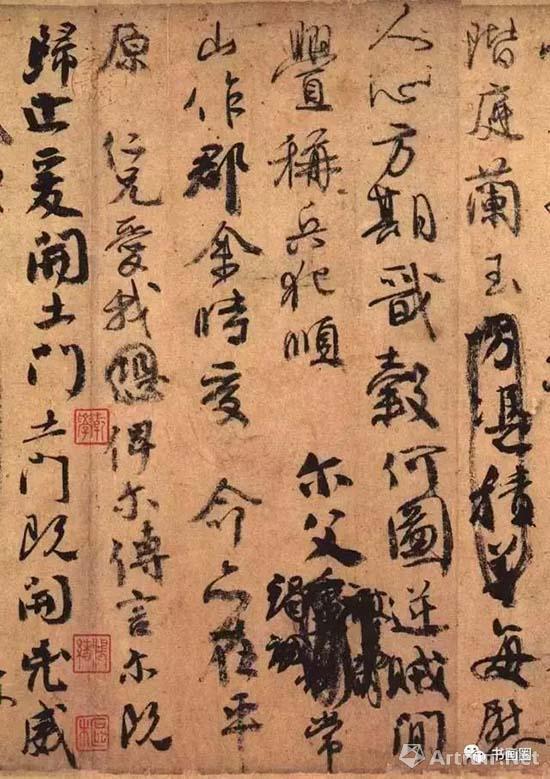 階庭蘭玉方憑積善每慰
人心方期戩穀何圖逆賊閒
釁稱兵犯順尔父竭誠常
山作郡余時受命亦在平
原仁兄愛我恐俾尔傳言尔既
歸止爰開土門土門既開凶威
书画圈
Artron.Net